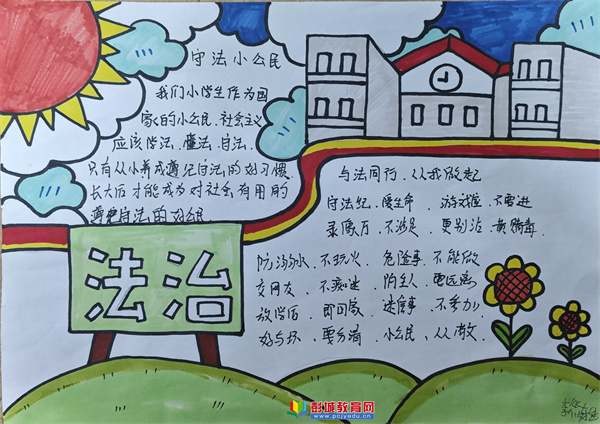 守法小公民
我们小学生作为国
家的小公民、社会主义
应该学法、懂法、守法.
只有从小养成遵纪守法的好习惯,
长大后才能成为对社会有用的
遵纪守法的好公民
法治
与法同行、从我做起
守法纪、慢生命、游戏厅、不要进
录像厅、不涉足、更别沾、黄赌毒.
防溺水、不玩火、危险事、不能做
交网友、不痴迷、陌生人、要远离
放学后、即回家、迷信事、不参加
好与坏、要分清、小公民、从小做、
彭城教育网
www.pcjyedu.cn